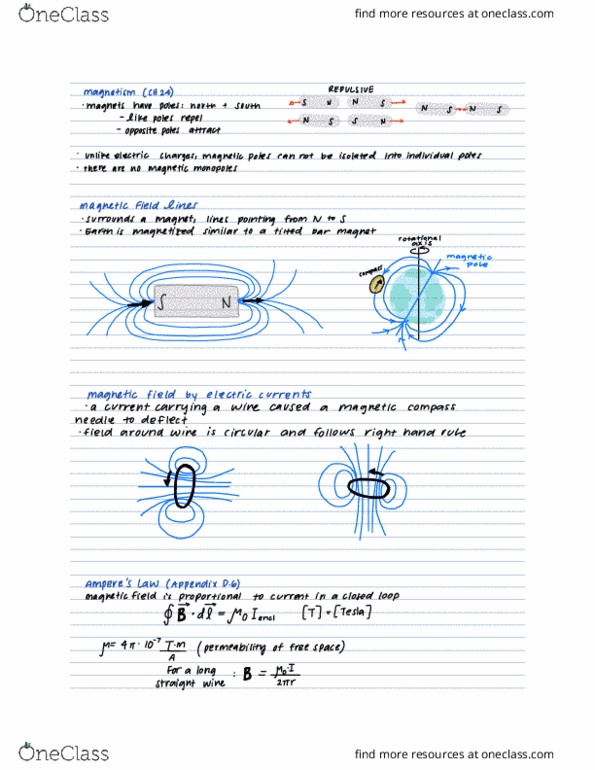 OneClass
find more resources at oneclass.com
magnetism (CH 24)
· magnets have poles: north + south
- like poles repel
- opposite poles attract
REPULSIVE
S N N S
N S S N
N S N S
· unlike electric charges, magnetic poles can not be isolated into individual poles
· there are no magnetic monopoles
magnetic field lines
· surrounds a magnet, lines pointing from N to S
· Earth is magnetized similar to a tilted bar magnet
rotational
axis
magnetic
pole
compass
S N
magnetic field by electric currents
· a current carrying a wire caused a magnetic compass
needle to deflect
· field around wire is circular and follows right hand rule
Ampere's Law (Appendix D.6)
magnetic field is proportional to current in a closed loop
∮ B⃗ · dl⃗ = μ₀ I encl [T] = [Tesla]
μ = 4π · 10⁻⁷ T·m/A (permeability of free space)
For a long
straight wine : B = μ₀·I / 2πr
OneClass
find more resources at oneclass.com